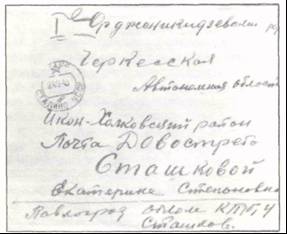 Орджоникидзевский
Черкесская
Автономная область
Икон-Халковский район
Почта Довостребо
Сташковой
Екатерине Степановне
Павлоград
Сташков.